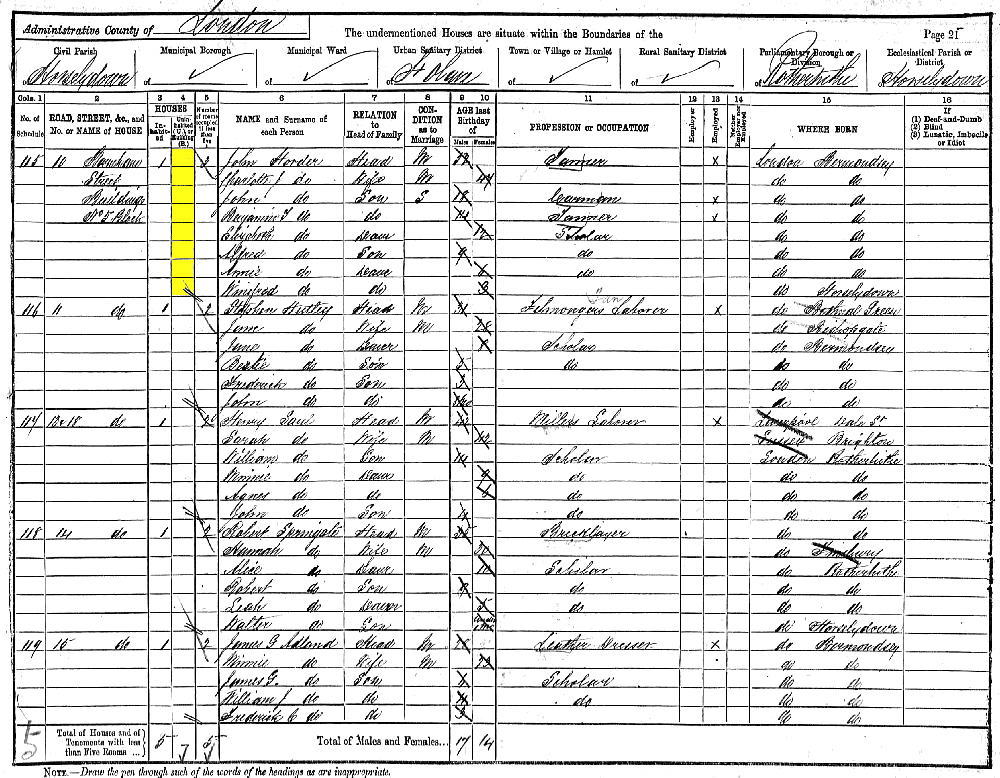 Administrative County of London The undermentioned Houses are situate within the Boundaries of the Page 21
Civil Parish Municipal Borough Municipal Ward Urban Sanitary District Town or Village or Hamlet Rural Sanitary District Parliamentary Borough or Division Ecclesiastical Parish or District
of Horselydown of of of St Olave of of of Rotherhithe of Horselydown
Cols. 1 2 3 4 5 6 7 8 9 10 11 12 13 14 15 16
No. of Schedule ROAD, STREET, &c., and No. or NAME of HOUSE HOUSES Inhabited Uninhabited (U.) or Building (B.) Number of rooms occupied if less than five NAME and Surname of each Person RELATION to Head of Family CONDITION as to Marriage AGE last Birthday of Males Females PROFESSION or OCCUPATION Employer Employed Neither Employer nor Employed WHERE BORN If (1) Deaf-and-Dumb (2) Blind (3) Lunatic, Imbecile or Idiot
115 10 1 John Horder Head M Tanner x London Bermondsey
Street Charlotte J do Wife M do do
Buildings John do Son S 18 Carman x do do
No 5 Block Benjamin J do do 14 Tanner x do do
Elizabeth do Daur 12 Scholar do do
Alfred do Son 9 do do do
Annie do Daur do do do
Winifred do do 3 do Horselydown
116 11 do 1 2 Stephen Head M Felmongers Laborer x do Bethnal Green
Jane do Wife M 28 do Bishopgate
Jane do Daur Scholar do Bermondsey
do Son 5 do do do
Frederick do Son 3 do do
John do do do do
117 do 1 2 Henry Saul Head M Millers Laborer x Liverpool
Sarah do Wife M Sussex Brighton
William do Son 14 Scholar London Rotherhithe
Minnie do Daur 9 do do do
Agnes do do do do do
John do Son do do do
118 14 do 1 2 Robert Springate Head M Bricklayer do do
Hannah do Wife M 30 do Finsbury
Alice do Daur 10 Scholar do Rotherhithe
Robert do Son 8 do do do
Leah do Daur 5 do do do
Walter do Son do Horselydown
119 15 do 1 2 James G Adland Head M Leather Dresser x do Bermondsey
Minnie do Wife M do do
James G. do Son Scholar do do
William J do do do do do
Frederick C do do 3 do do
5 Total of Houses and of Tenements with less than Five Rooms ... 5 5 Total of Males and Females... 17 14
NOTE.—Draw the pen through such of the words of the headings as are inappropriate.